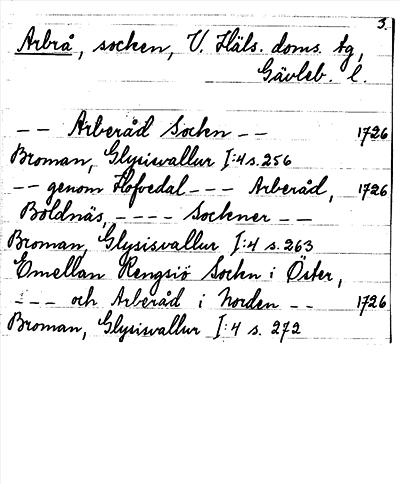 3.
Arbrå, socken, V. Häls. doms. tg,
Gävleb. l.
-- Arberåd Sockn -- 1726
Broman, Glysisvallur I:4 s. 256
-- genom Hofvedal --- Arberåd, 1726
Boldnäs, ---- Sockner --
Broman, Glysisvallur I:4 s. 263
Emellan Rengsiö Sockn i Öster,
--- och Arberåd i Norden -- 1726
Broman, Glysisvallur I:4 s. 272